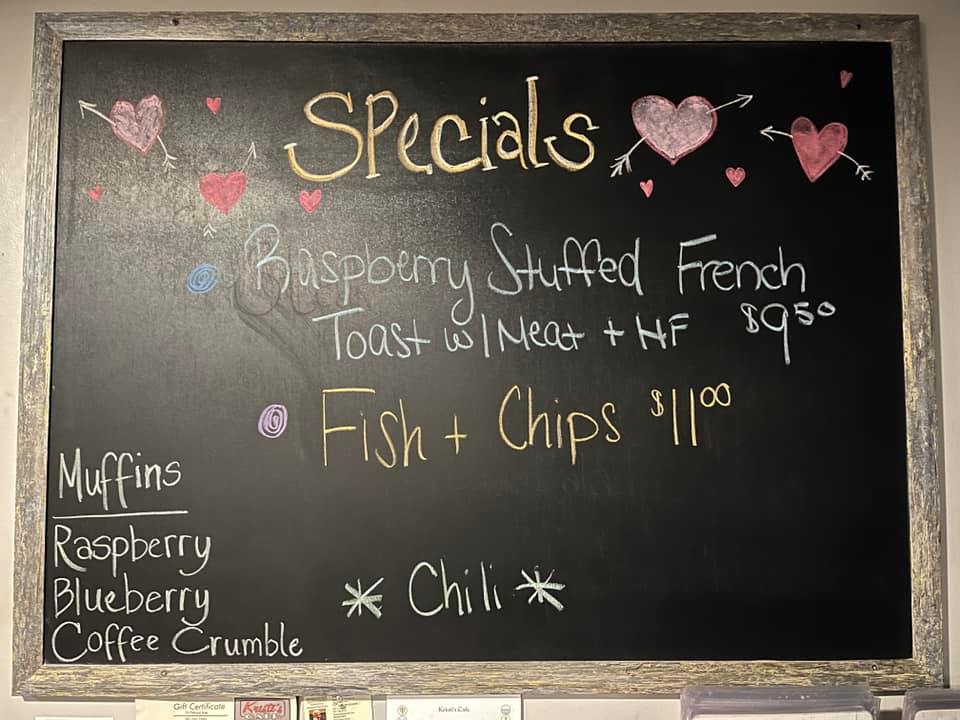 Specials
Raspberry Stuffed French
Toast w/ Meat + HF $9.50
Fish + Chips $11.00
Muffins
Raspberry
Blueberry
Coffee Crumble
* Chili *
Gift Certificate
Kristi's
Kristi's Cafe